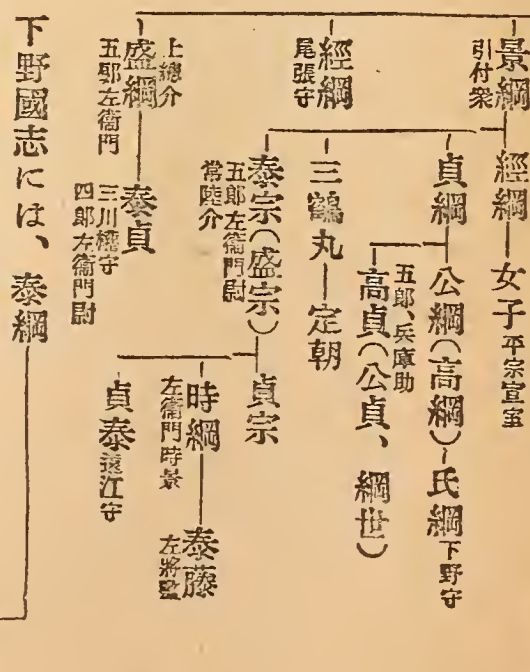 景綱 引付衆
經綱―女子 平宗宣室
貞綱
公綱(高綱)―氏綱 下野守
五郎、兵庫助
高貞(公貞、綱世)
經綱 尾張守
三鶴丸―定朝
泰宗(盛宗)
五郎左衞門尉
常陸介
貞宗
時綱 左衞門時景
泰藤 左將監
貞泰 遠江守
上總介
盛綱
五郎左衞門
泰貞
三川權守
四郎左衞門尉
下野國志には、泰綱